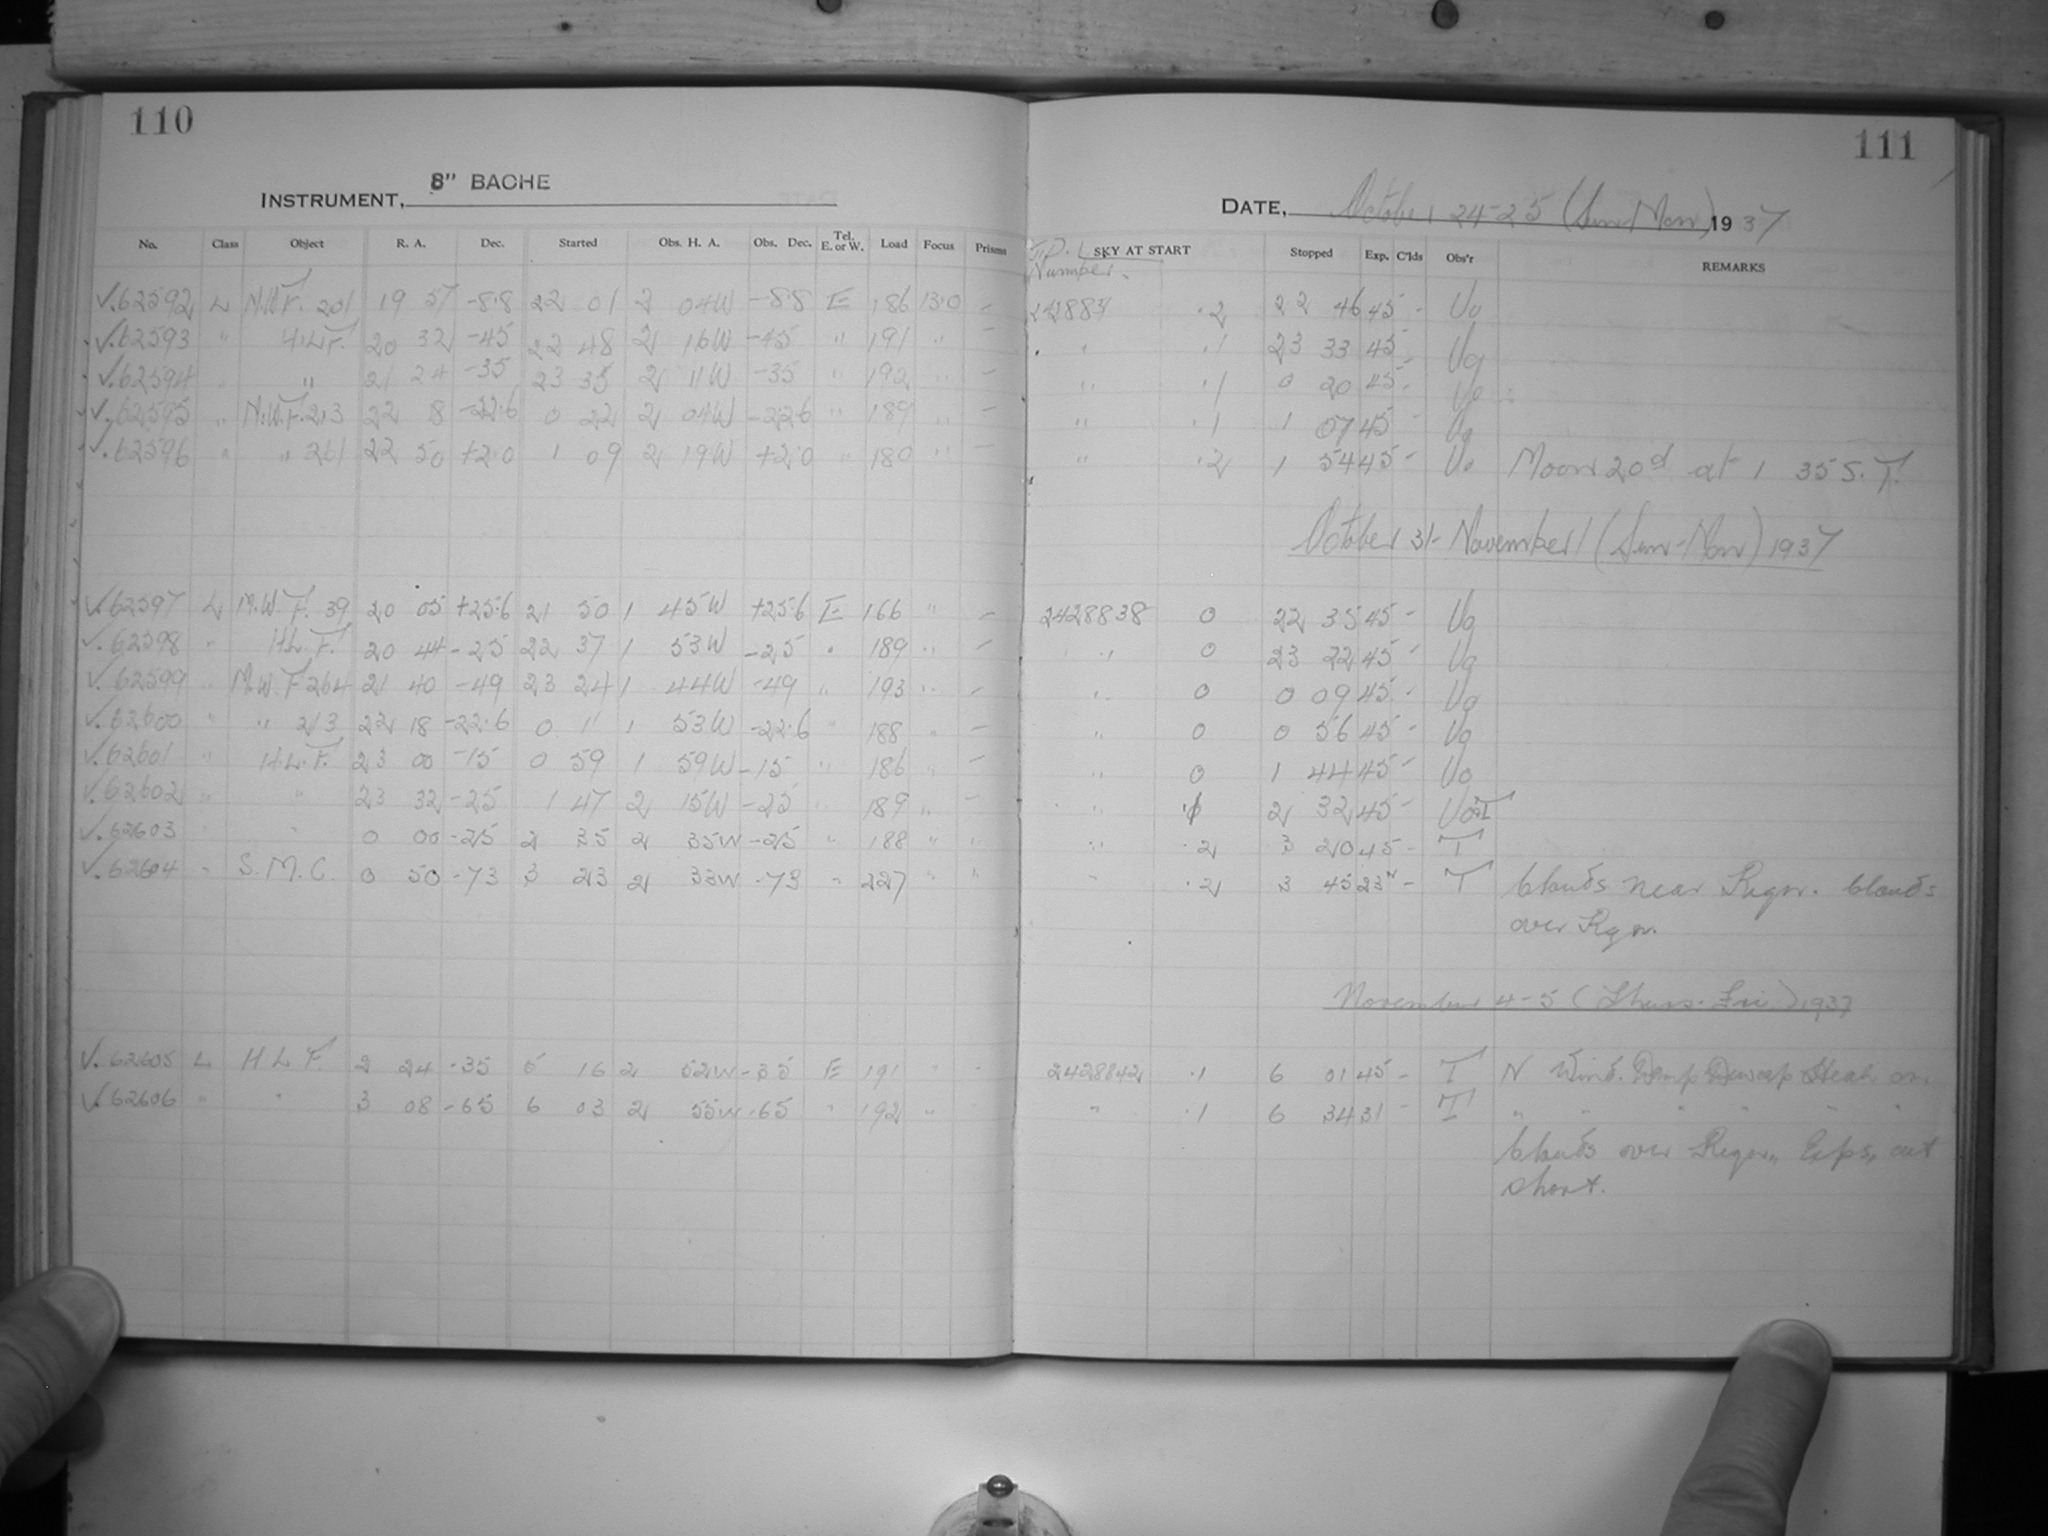 110
111
8" BACHE
INSTRUMENT,
DATE, October 24-25 (Sun-Mon) 1937
No. Class Object R. A. Dec. Started Obs. H. A. Obs. Dec. Tel. E. or W. Load Focus Prisms J.D. Number. SKY AT START Stopped Exp. C'lds Obs'r REMARKS
√.62592 L M.W.F. 201 19 57 -8.8 22 01 2 04W -8.8 E 186 13.0 - .2 22 46 45 -
√.62593 " H.L.F. 20 32 -45 22 48 2 16W -45 " 191 " - " .1 23 33 45
√.62594 " " 21 24 -35 23 35 2 11W -35 " 192 " - " .1 0 20 45 -
√.62595 " M.W.F. 213 22 8 -22.6 0 22 2 04W -22.6 " 189 " - " .1 1 07 45 -
√.62596 " " 261 22 50 +2.0 1 09 2 19W +2.0 " 180 " - " .2 1 54 45 - Moon 20d at 1 35 S.T.
October 31-November 1 (Sun-Mon) 1937
√.62597 L M.W.F. 39 20 05 +25.6 21 50 1 45W +25.6 E 166 " - 2428838 0 22 35 45 -
√.62598 " H.L.F. 20 44 -25 22 37 1 53W -25 " 189 " - " 0 23 22 45 -
√.62599 " M.W.F. 264 21 40 -49 23 24 1 44W -49 " 193 " - " 0 0 09 45 -
√.62600 " " 213 22 18 -22.6 0 11 1 53W -22.6 " 188 " - " 0 0 56 45 -
√.62601 " H.L.F. 23 00 -15 0 59 1 59W -15 " 186 " - " 0 1 44 45 -
√.62602 " " 23 32 -25 1 47 2 15W -25 " 189 " - " 2 32 45 -
√.62603 " " 0 00 -25 2 35 2 35W -25 " 188 " " " .2 3 20 45 - T
√.62604 " S.M.C. 0 50 -73 3 23 2 33W -73 " 227 " " " .2 3 45 23 - T Clouds near Regn. Clouds
over Regn.
November 4-5 (Thurs-Fri) 1937
√.62605 L H L F. 2 24 -35 5 16 2 52W -35 E 191 " - 2428842 .1 6 01 45 - T N Wind. Damp Dewcap Heat on.
√.62606 " " 3 08 -65 6 03 2 55W -65 " 192 " " .1 6 34 31 - T " " " " " "
Clouds over Regn. Exps. cut
short.